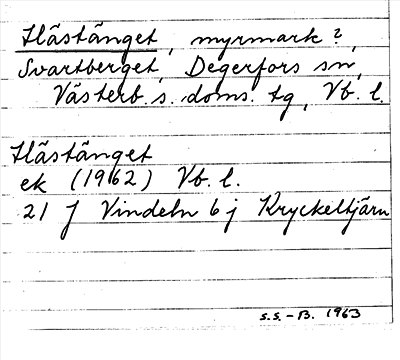 Hästänget, myrmark?,
Svartberget, Degerfors sn,
Västerb. s. doms. tg, Vb. l.
Hästänget
ek (1962) Vb. l.
21 J Vindeln 6 j Kryckeltjärn
S.S. - B. 1963